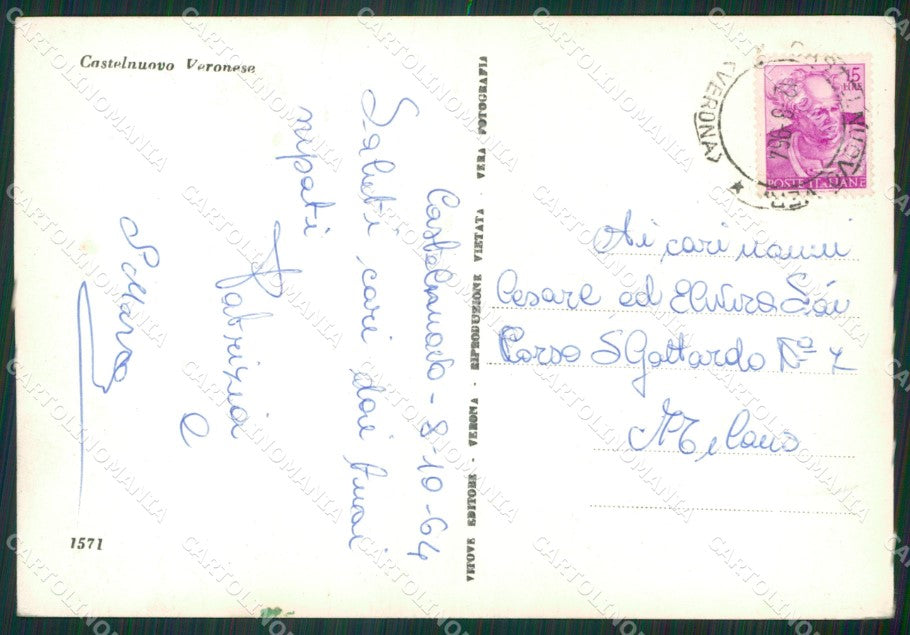 Castelnuovo Veronese
Castelnuovo - 8-10-64
Saluti cari dai
nipoti
Fabrizia
e
1571
VERONA - RIPRODUZIONE VIETATA - VERA FOTOGRAFIA
EDITORE
(VERONA)
15
LIRE
POSTE ITALIANE
Ai cari nonni
Cesare ed Elvira
Corso S Gottardo N° 7
Milano
CARTOLINOMANIA